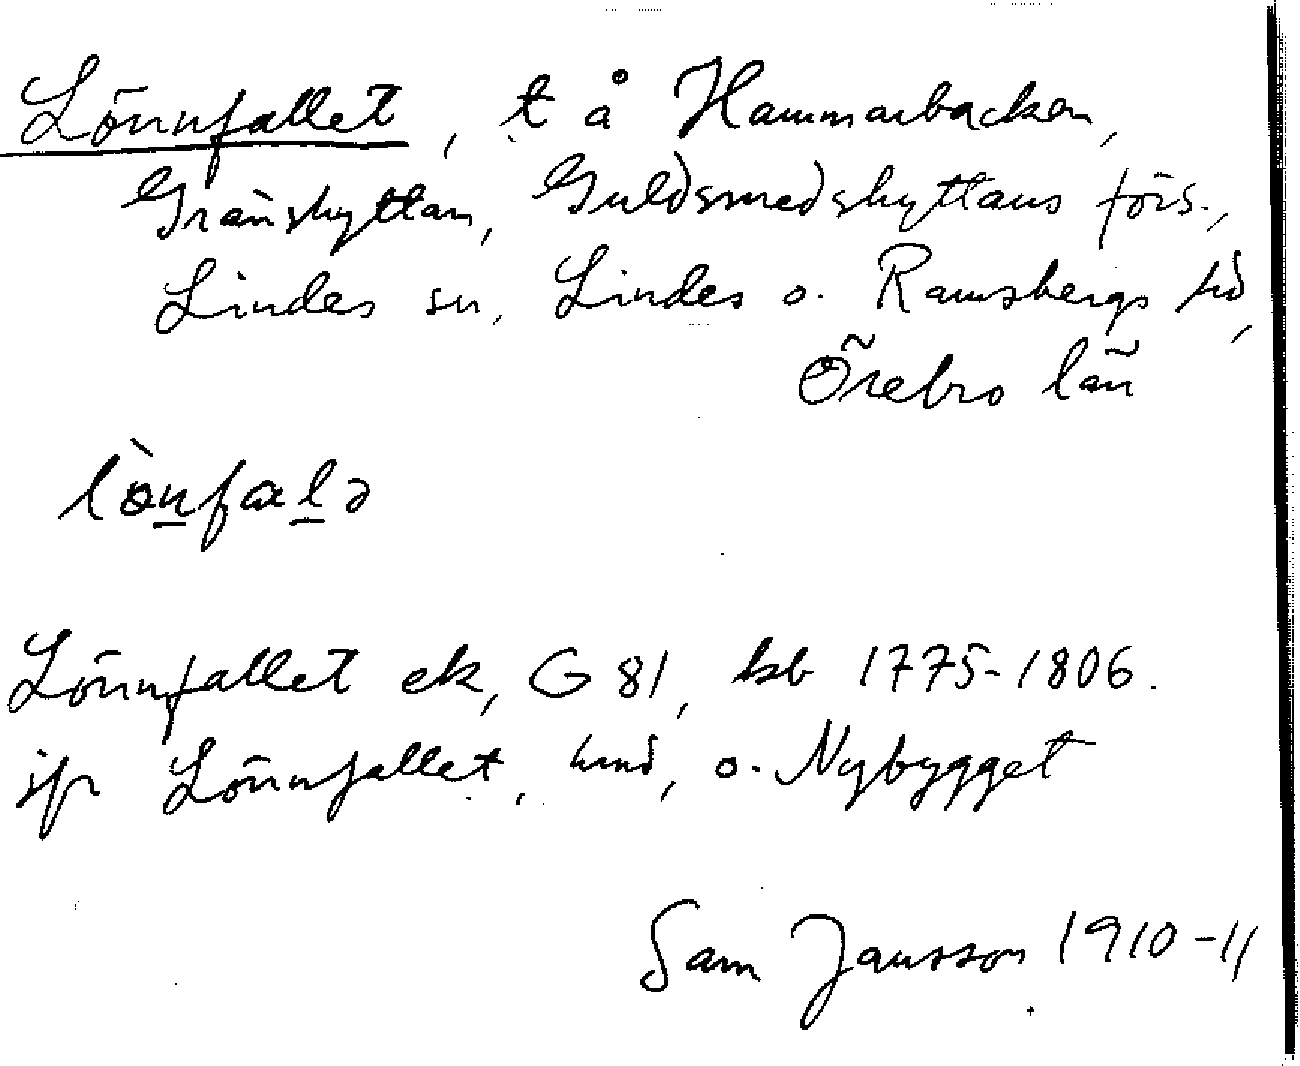 Lönnfallet, t å Hammarbacken,
Gränshyttan, Guldsmedshyttans förs.,
Lindes sn, Lindes o. Ramsbergs hd,
Örebro län
lò̱nfalə
Lönnfallet ek, G 81, kb 1775-1806.
jfr Lönnfallet, hmd, o. Nybygget
Sam Jansson 1910-11